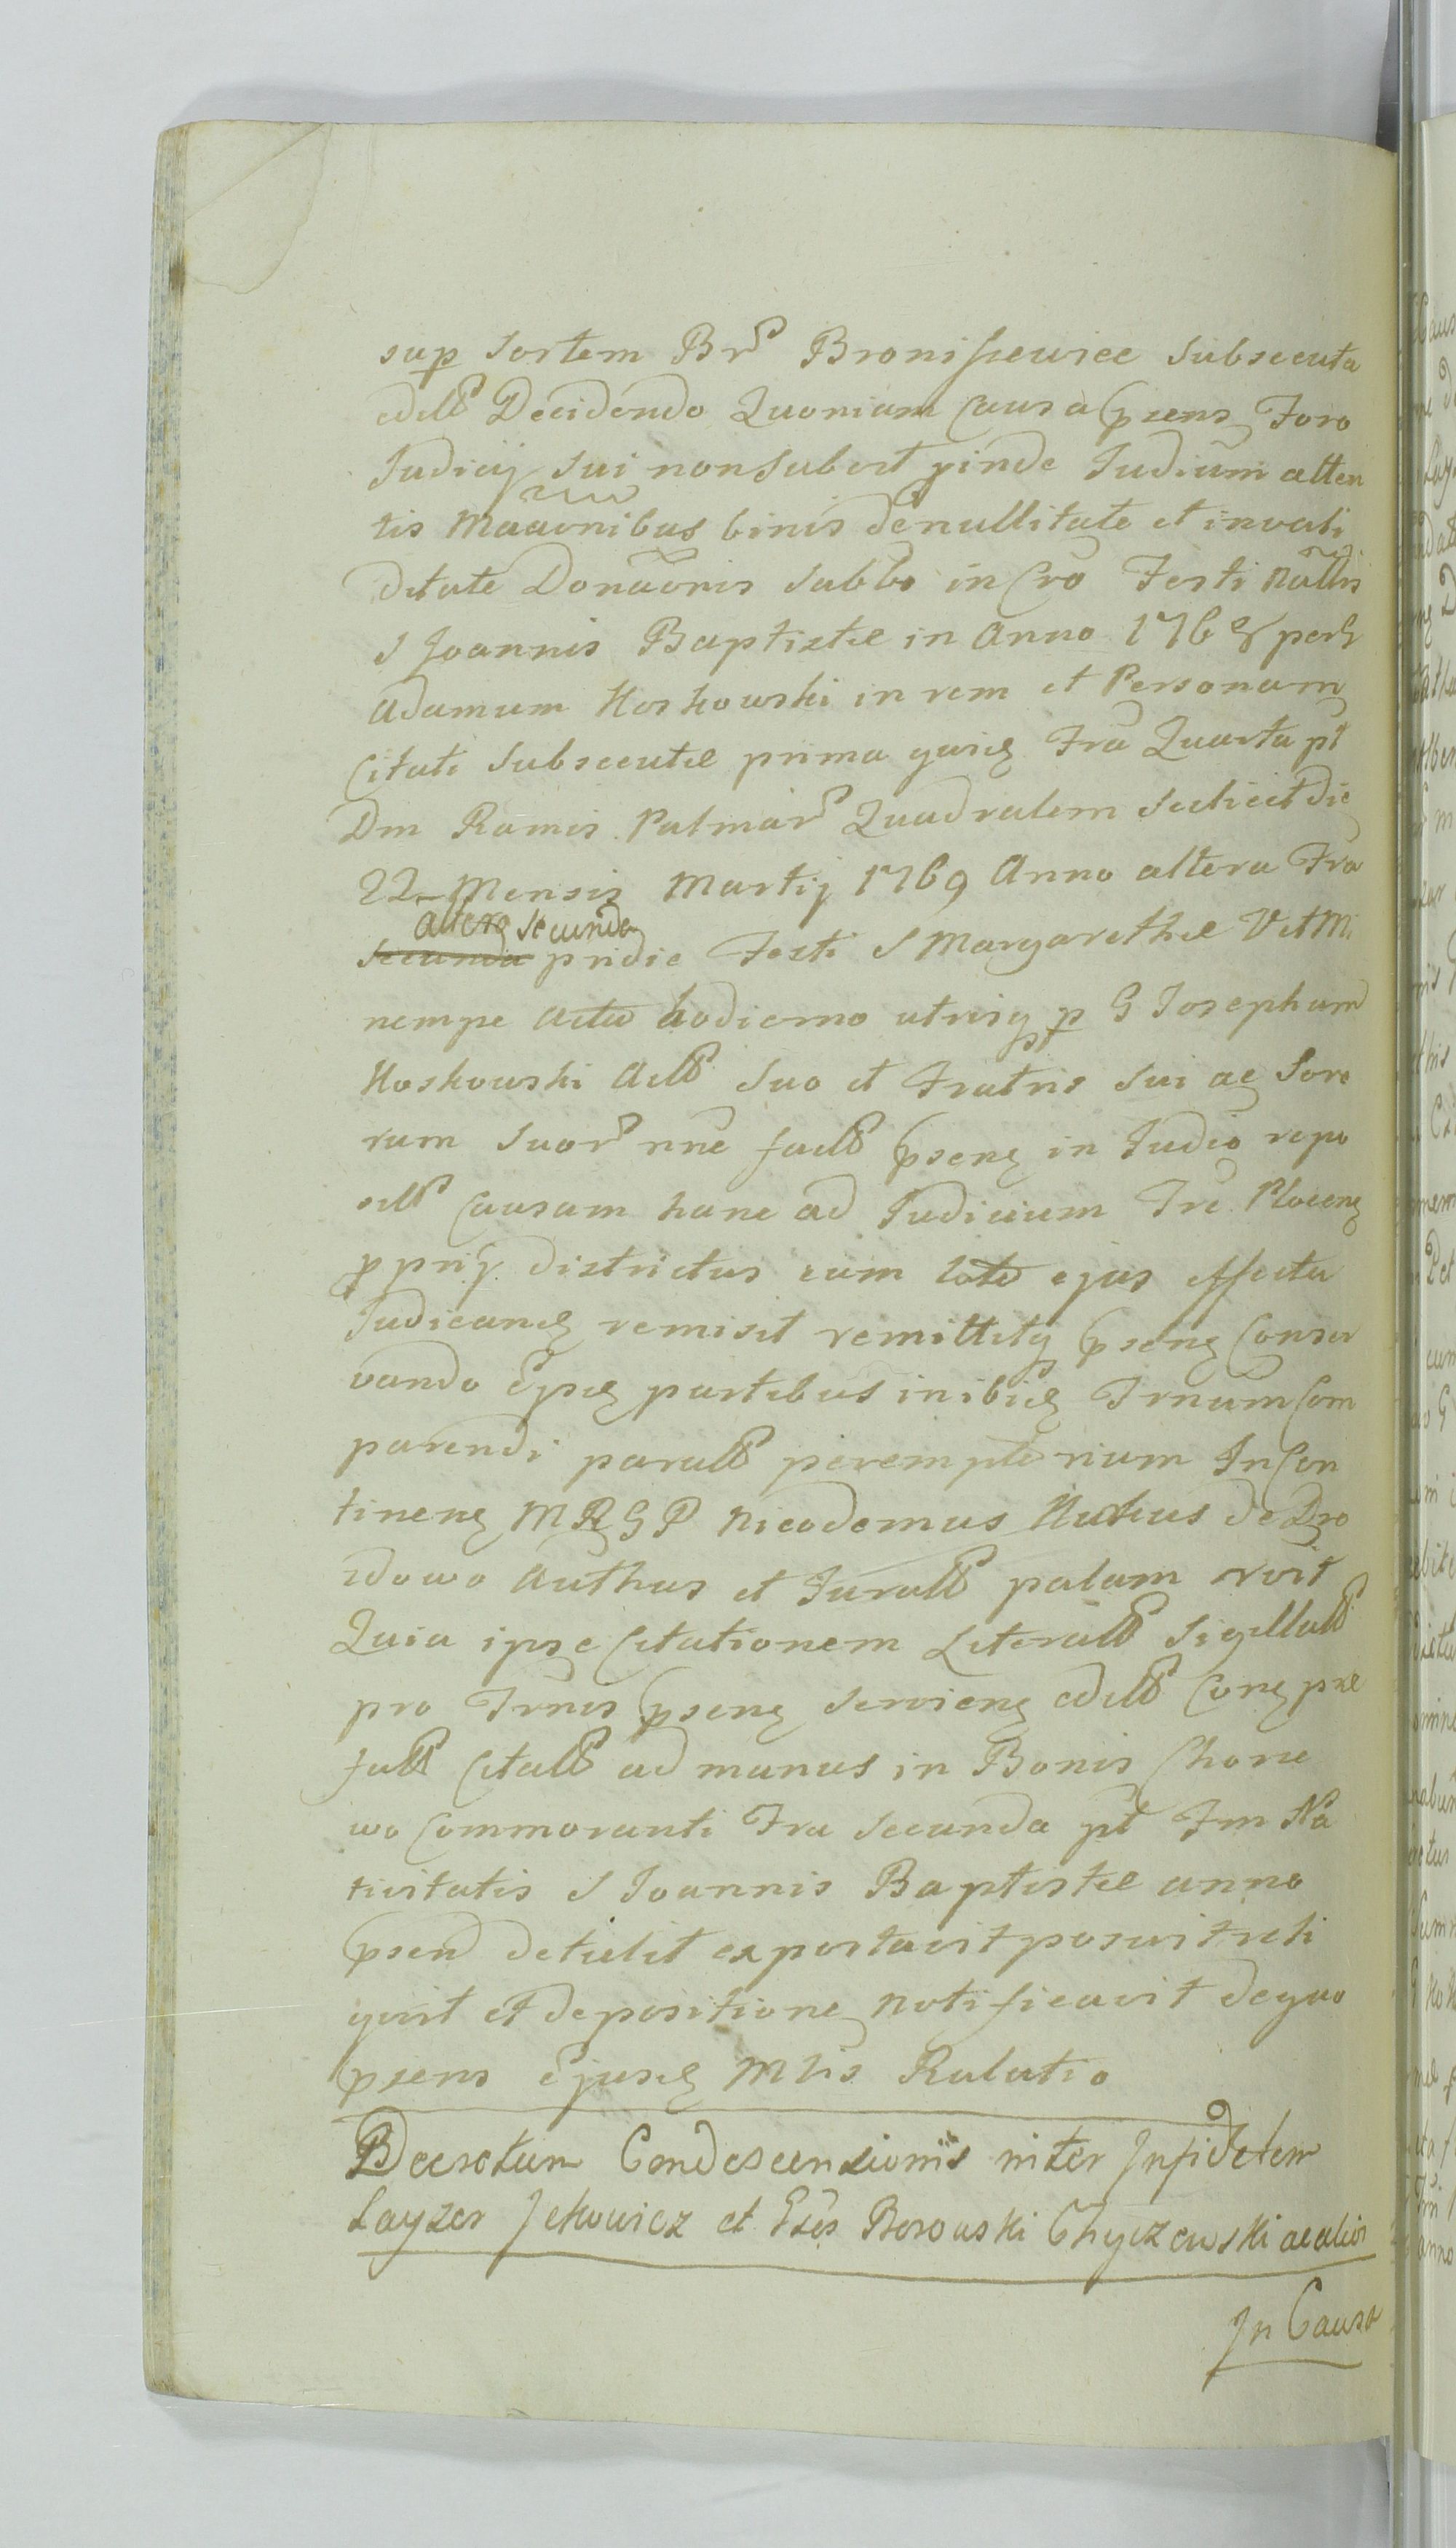 sup sortem Br Broniszewice subsecuta
edit Decidendo Quoniam Causa psens Foro
Judicij sui non subest pinde Judium atten
tis Maaonibus binis de nullitate et invali
ditate Donaonis Sabbo in Cro Festi Natlis
S Joannis Baptistæ in Anno 1768 per G
Adamum Koskowski in rem et Personam
Citati subsecutæ prima Fra Quarta pt
Dm Ramis Palmar Quadralem scilicet die
22 Mensis Martij 1769 Anno altera Fra
altera secunda
secunda pridie Festi S Margarethæ V et M
nempe actu hodierno utrisq p G Josephum
Koskowski suo et Fratris sui ac Soro
rum suor nne psens in Judio repo
Causam hanc ad Judicium Tre Plocens
pprij districtus cum toto ejus effectu
Judicand remisit remittitq psens Conser
vando partibus inibid Trnum Com
parendi peremptorium In Con
tinens MRGP Nicodemus de Dro
zdowo Authus et Jurat palam
Quia ipse Citationem Literat Sigillat
pro Trnis psens serviens edit Cons præ
fat Citat ad manus in Bonis
wo Commoranti Fra secunda pt Fm Na
tivitatis S Joannis Baptistæ anno
psend detulit exportavit posuit reli
quit et depositione notificavit de quo
psens ejusd Mlis Relatio
Decretum Condescensionis inter Infidelem
Layzer Jekowicz et Borowski Chyczewski ac alios
In Causa